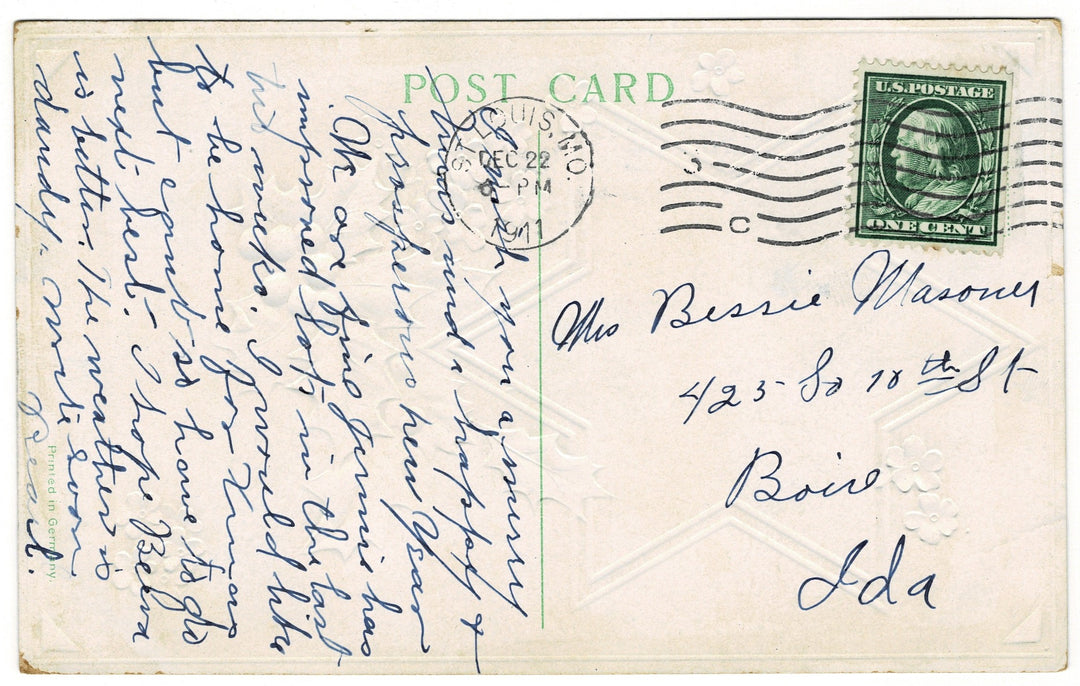 POST CARD
ST. LOUIS, MO.
DEC 22
6-PM
1911
3
C
U.S. POSTAGE
ONE CENT
wish you a merry
Xmas and a happy &
prosperous new Year
We are fine Jennie has
improved lots in the last
two weeks. I would like
to be home for Xmas
but cant so have to do
next best. I hope Belva
is better. The weather is
dandy - write soon
Pearl.
Mrs Bessie Masoner
423 So 10th St
Boise
Ida
Printed in Germany.